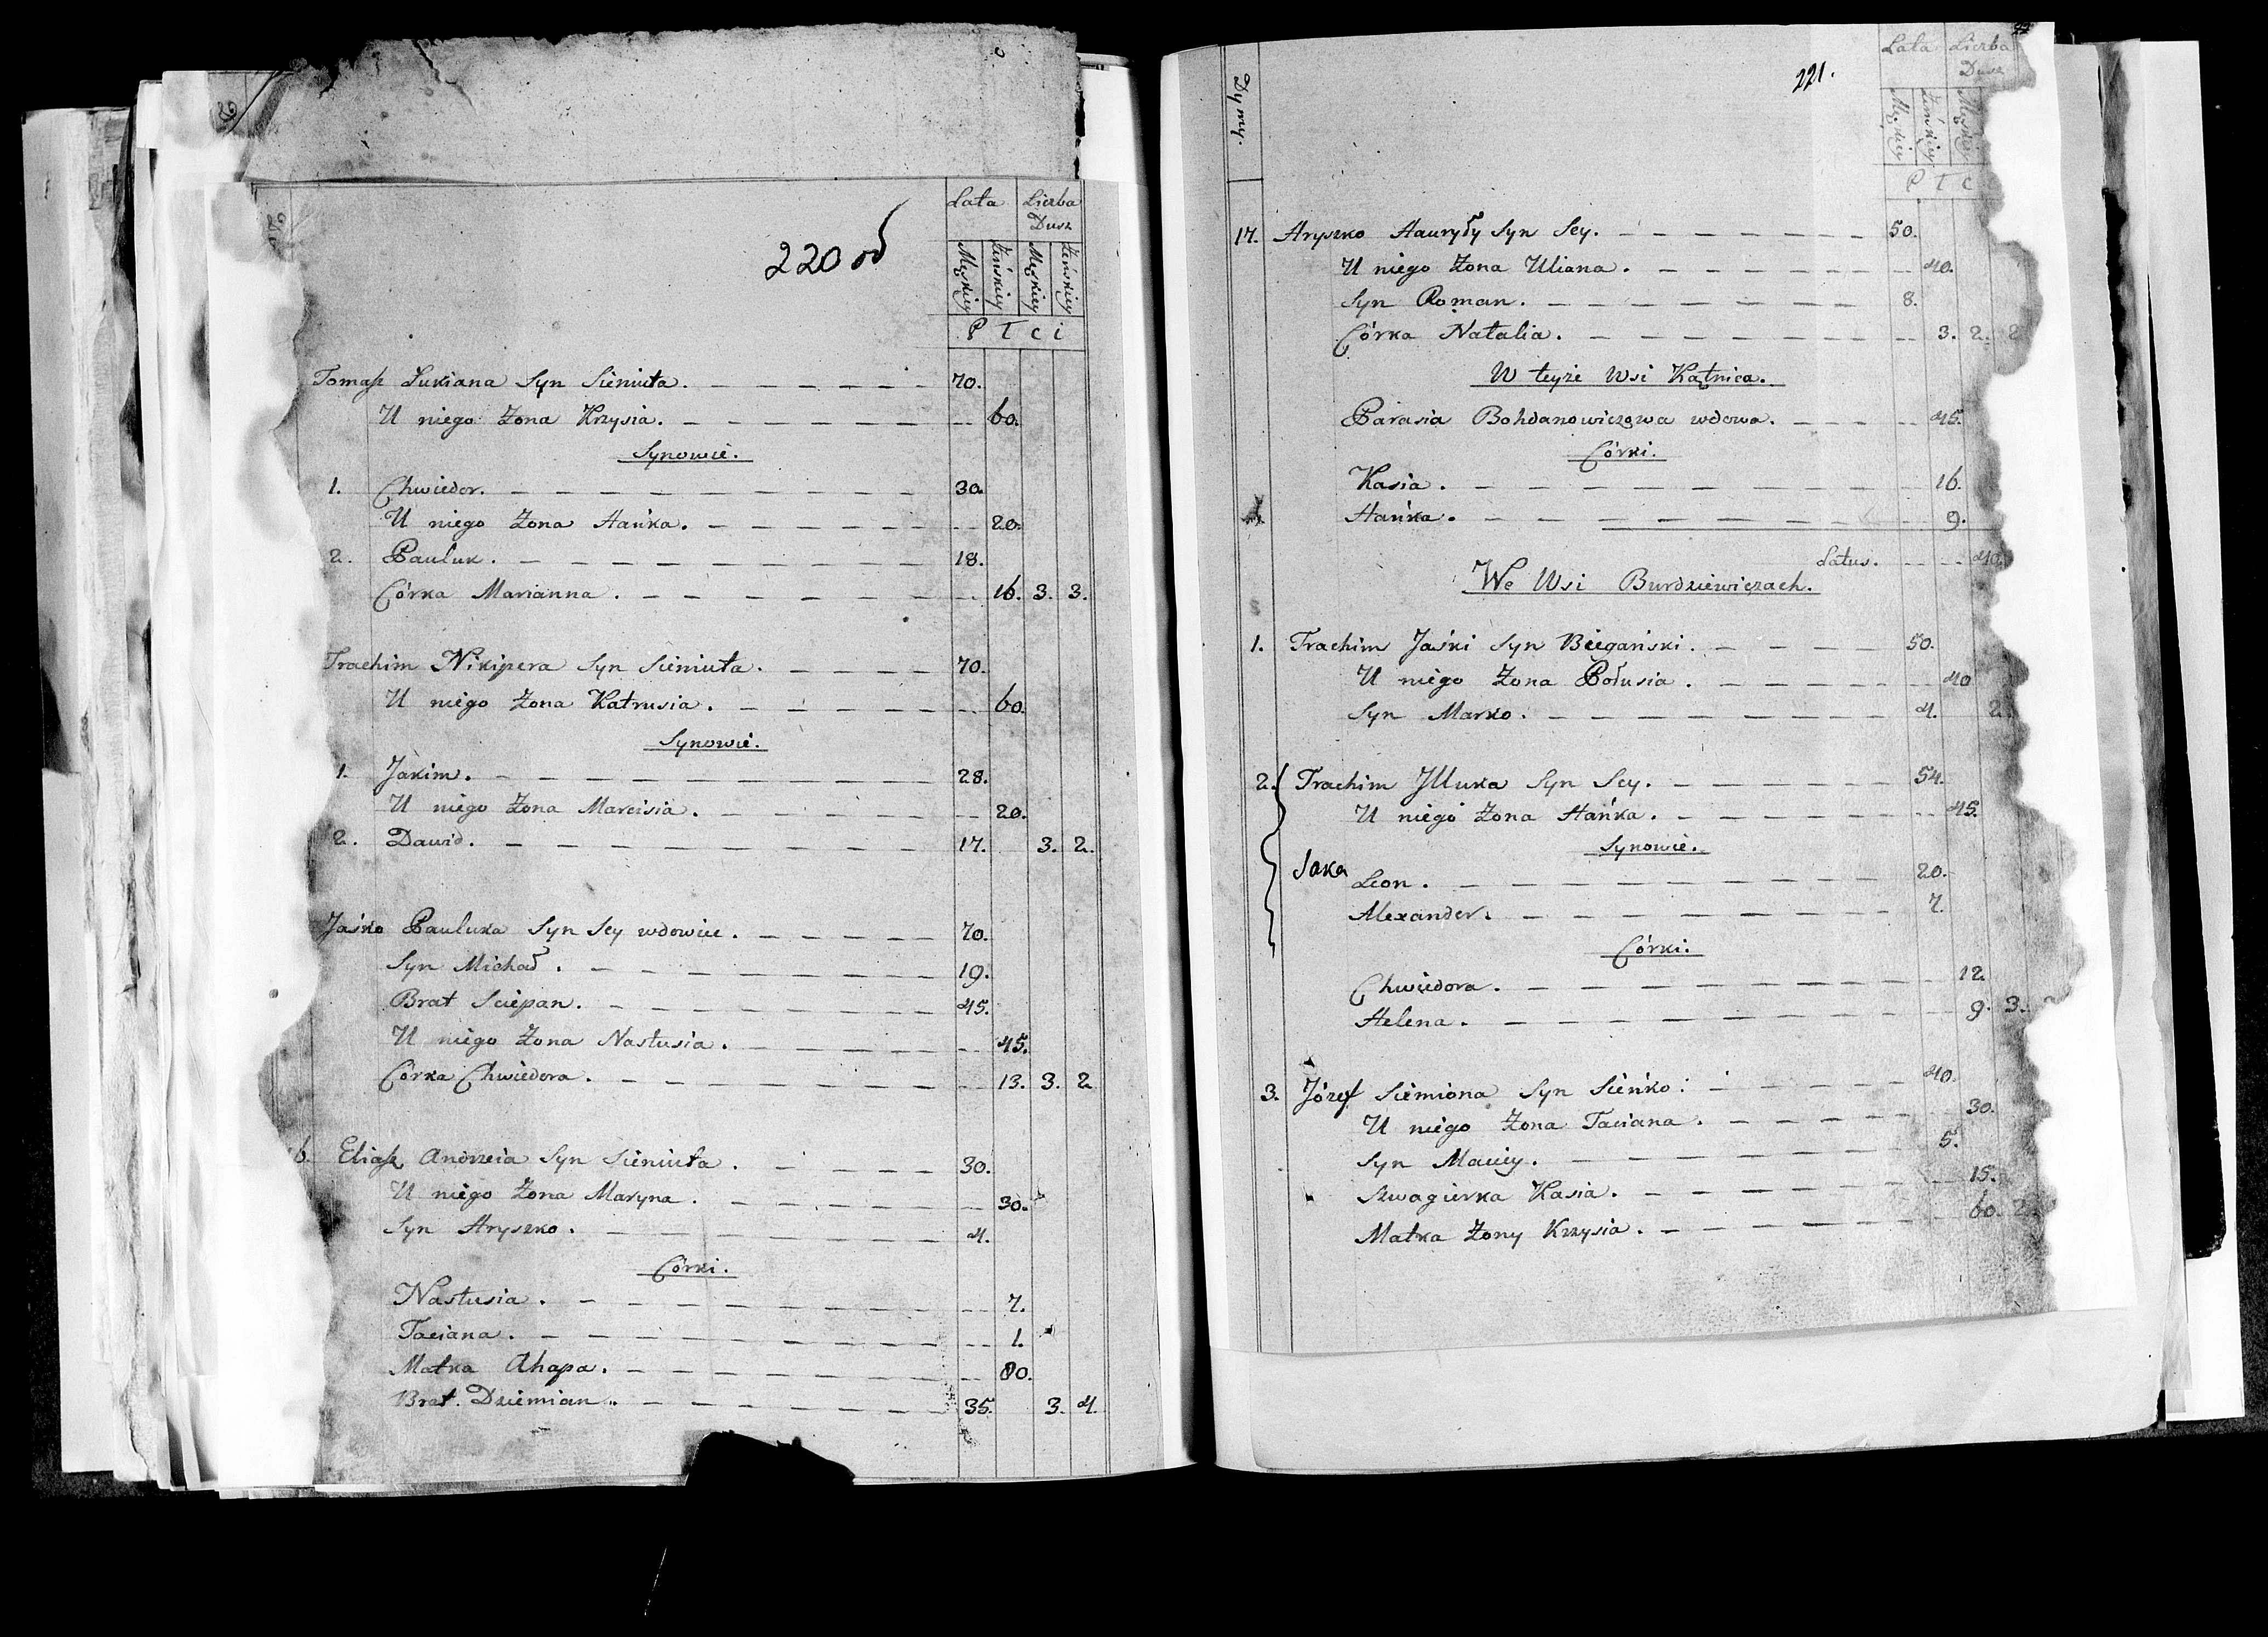 220 об
Lata Liczba Dusz
Męskiey Żeńskiey Męskiey Żeńskiey
Płci
Tomasz Łukiana Syn Sieniuta. 70.
U niego Żona Krzysia. 60.
Synowie.
1. Chwiedor. 30.
U niego Żona Hańka. 20.
2. Pauluk. 18.
Córka Marianna. 16. 3. 3.
Trachim Nikipera Syn Sieniuta. 70.
U niego Żona Katrusia. 60.
Synowie.
1. Jakim. 28.
U niego Żona Marcisia. 20.
2. Dawid. 17. 3. 2.
Jaśko Pauluka Syn Sey wdowiec. 70.
Syn Michał. 19.
Brat Sciepan. 45.
U niego Żona Nastusia. 45.
Córka Chwiedora. 13. 3. 2
6. Eliasz Andrzeia Syn Sieniuta. 30.
U niego Żona Maryna. 30.
Syn Hryszko. 4.
Córki.
Nastusia. 7.
Taciana. 1.
Matka Ahapa. 80.
Brat Dziemian. 35. 3. 4.
221.
Dymy.
Lata Liczba Dusz
Męskiey Żeńskiey Męskiey
Płc
17. Hryszko Hauryły Syn Sey. 50.
U niego Żona Uliana. 40.
Syn Roman. 8.
Córka Natalia. 3. 2. 2
W teyże Wsi Kątnica.
Parasia Bohdanowiczowa wdowa. 45.
Córki.
Kasia. 16.
Hańka. 9.
Latus. 40
We Wsi Burdziewiczach.
1. Trachim Jaśki Syn Biegański. 50.
U niego Żona Połusia. 40
Syn Marko. 4. 2.
2. Trachim Jlluka Syn Sey. 54.
U niego Żona Hańka. 45.
Synowie.
Saka
Leon. 20.
Alexander. 7.
Córki.
Chwiedora. 12.
Helena. 9. 3.
3. Józef Siemiona Syn Sieńko. 40.
U niego Żona Taciana. 30.
Syn Maciey. 5.
Szwagierka Kasia. 15.
Matka Żony Krzysia. 60. 2